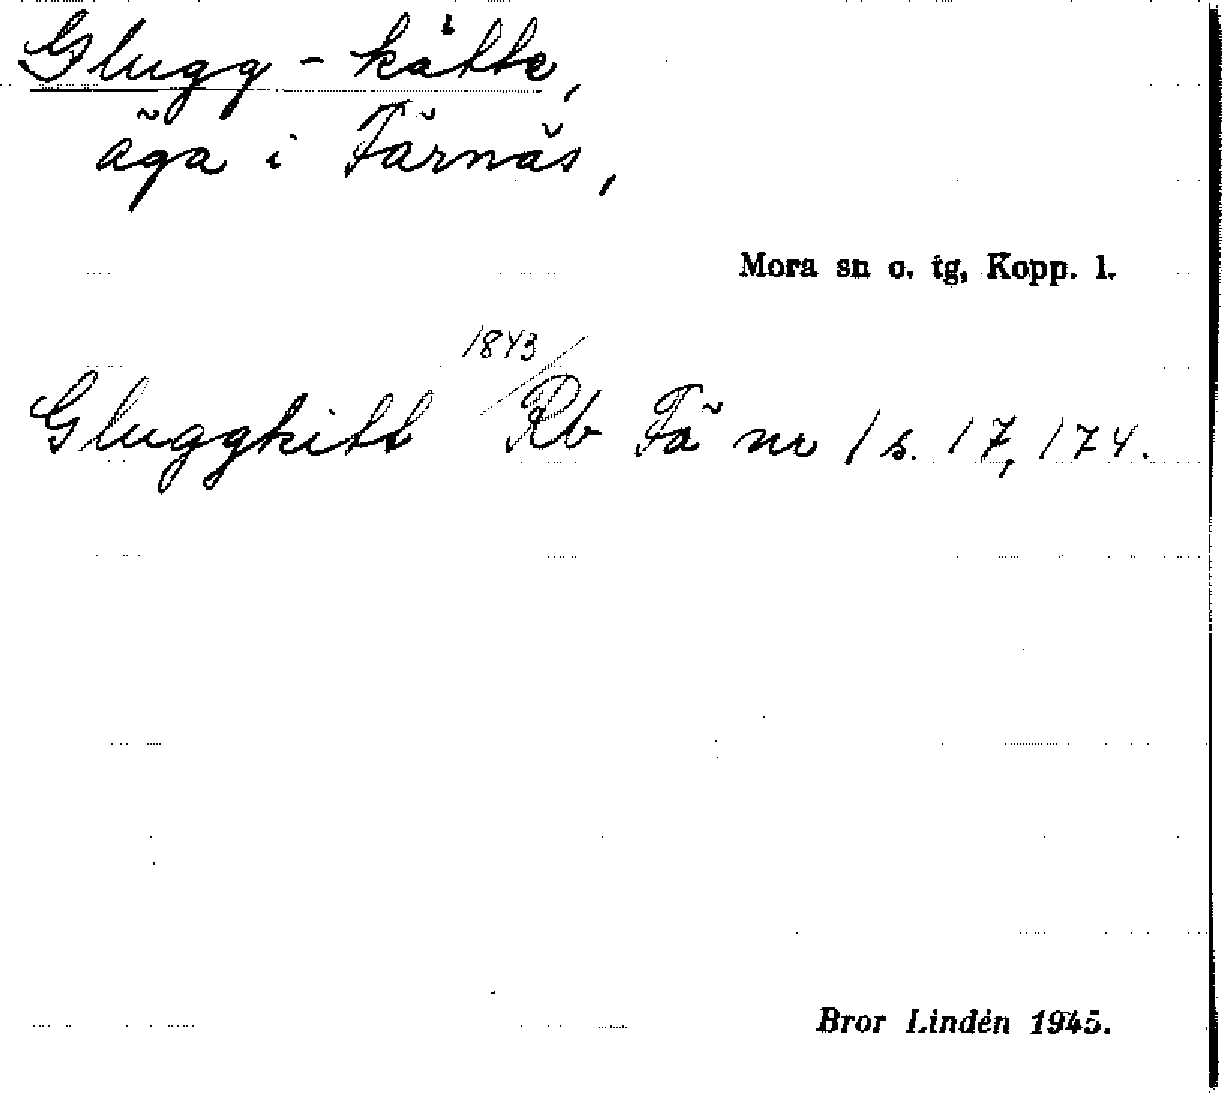 Glugg-kätte,
äga i Färnäs,
Mora sn o. tg, Kopp. l.
Gluggkitt 1843/ Rb Fä nr 1 s. 17, 174.
Bror Lindén 1945.